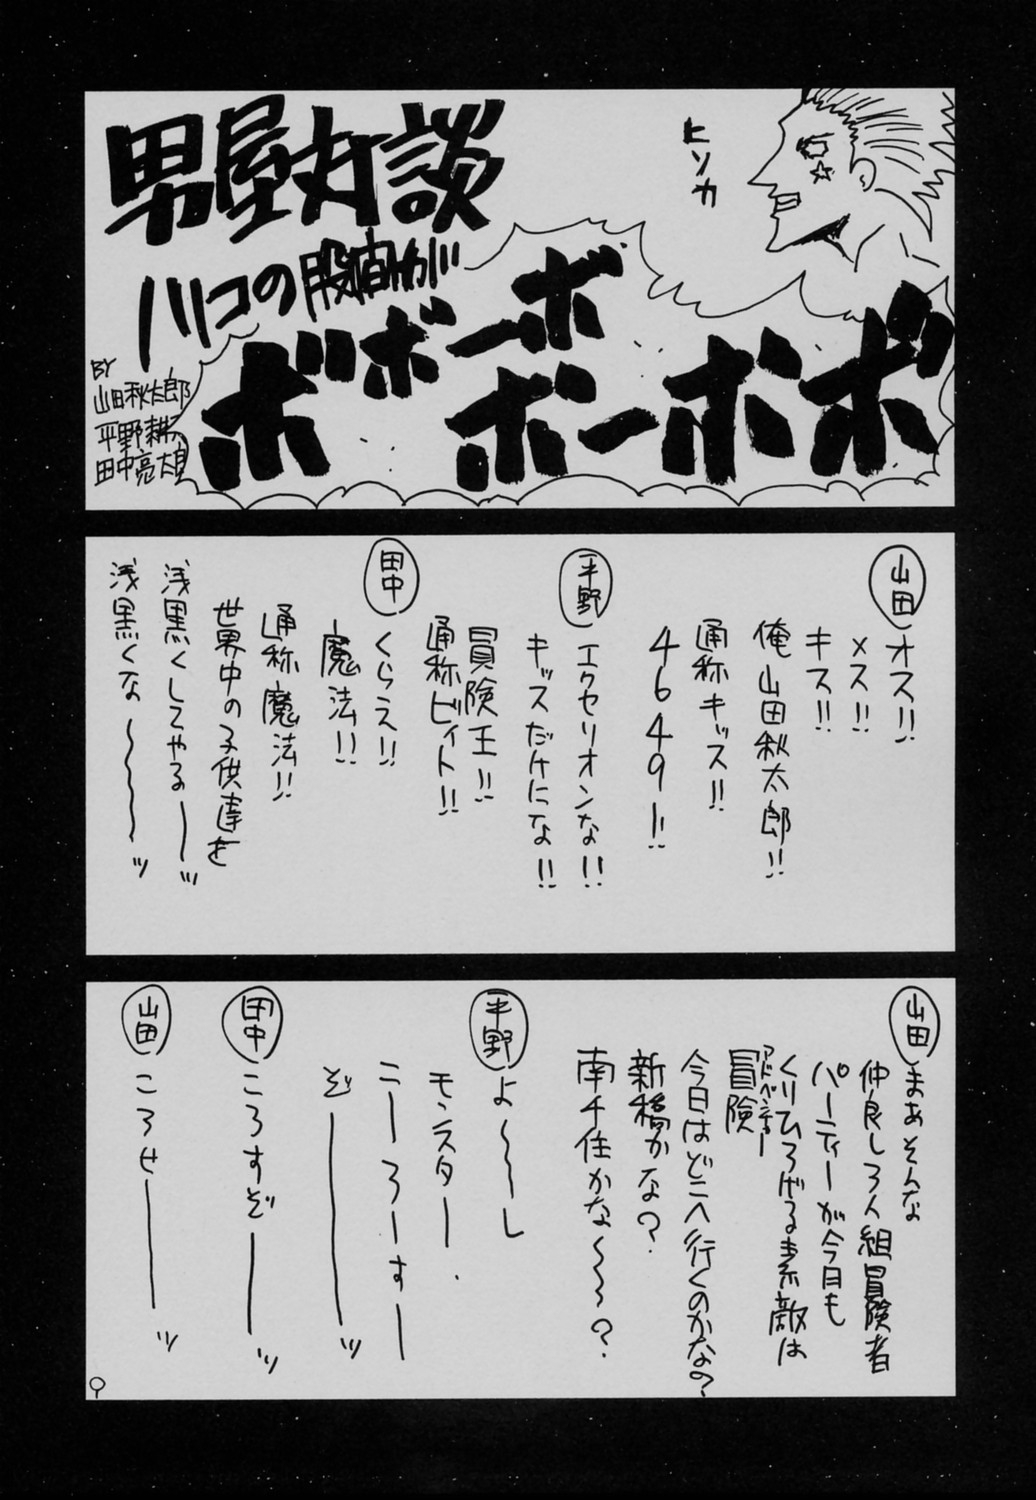 男屋対談
ハリコの股間が
ボボーボ
ボーボボ
ヒソカ
BY
山田秋太郎
平野耕太
田中亮太郎
山田
オス!!
メス!!
キス!!
俺山田秋太郎!!
通称キッス!!
4649ー!!
平野
エクセリオンな!!
キッスだけにな!!
冒険王!!
通称ビィト!!
田中
くらえ!!
魔法!!
通称魔法!!
世界中の子供達を
浅黒くしてやるー〜ッ
浅黒くな〜〜〜ッ
山田
まあそんな
仲良し3人組冒険者
パーティーが今日も
くりひろげる素敵は
冒険
アドベンチャー
今日はどこへ行くのかな?
新橋かな?
南千住かな〜〜?
平野
よ〜〜し
モンスター
こーろーすー
ぞーーッ
田中
ころすぞーーッ
山田
ころせーーッ